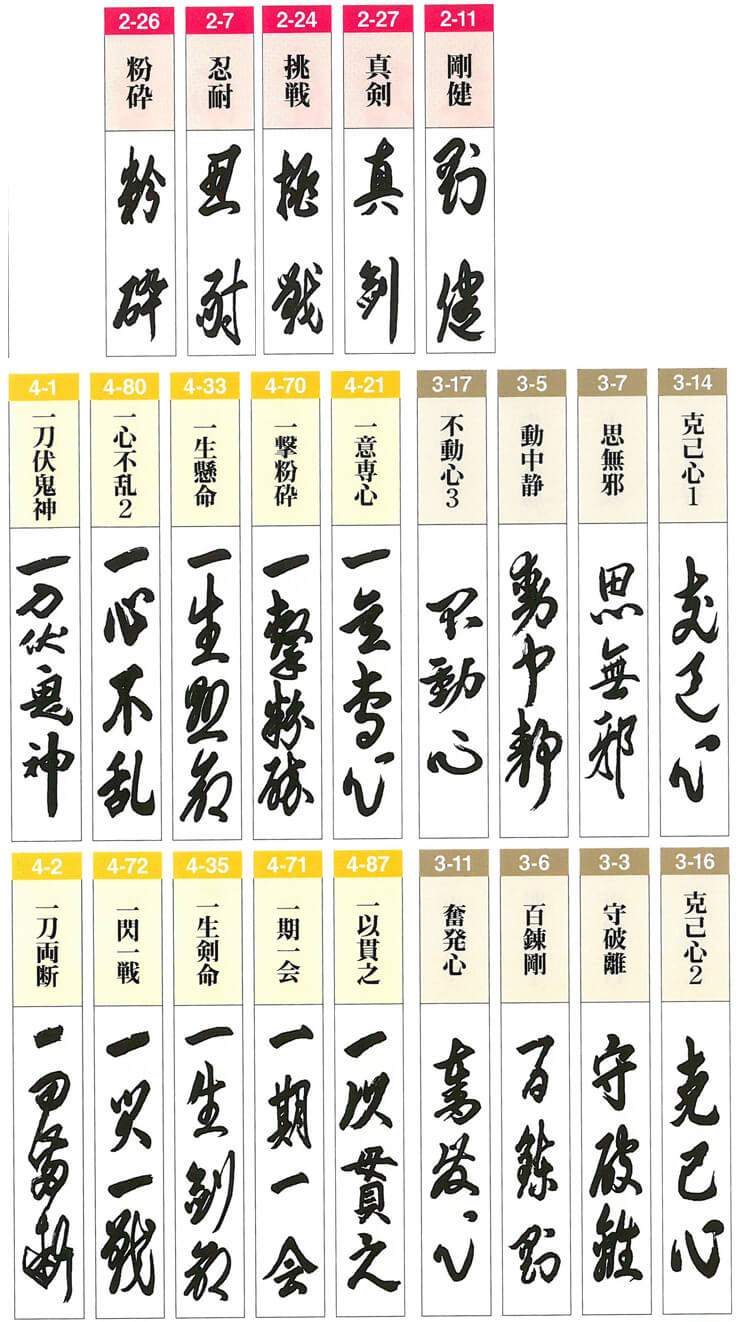 2-11
剛健
剛健
2-27
真剣
真剣
2-24
挑戦
挑戦
2-7
忍耐
忍耐
2-26
粉砕
粉砕
3-14
克己心1
克己心
3-7
思無邪
思無邪
3-5
動中静
動中静
3-17
不動心3
不動心
4-21
一意専心
一意専心
4-70
一撃粉砕
一撃粉砕
4-33
一生懸命
一生懸命
4-80
一心不乱2
一心不乱
4-1
一刀伏鬼神
一刀伏鬼神
3-16
克己心2
克己心
3-3
守破離
守破離
3-6
百錬剛
百錬剛
3-11
奮発心
奮発心
4-87
一以貫之
一以貫之
4-71
一期一会
一期一会
4-35
一生剣命
一生剣命
4-72
一閃一戦
一閃一戦
4-2
一刀両断
一刀両断